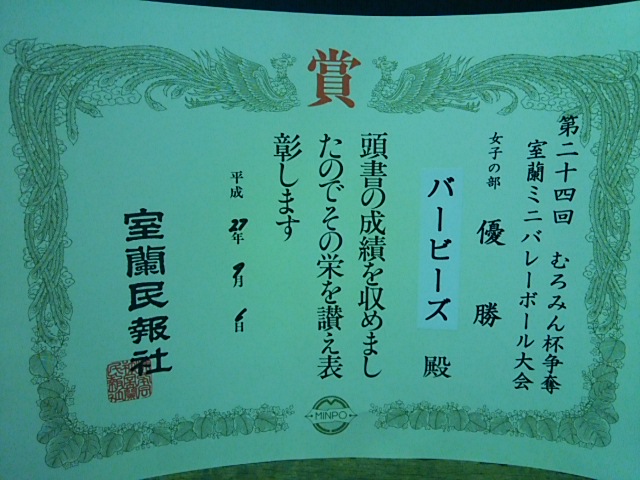 賞
第二十四回 むろみん杯争奪
室蘭ミニバレーボール大会
女子の部 優勝
バービーズ 殿
頭書の成績を収めまし
たのでその栄を讃え表
彰します
平成 27年 9月 6日
室蘭民報社
MINPO